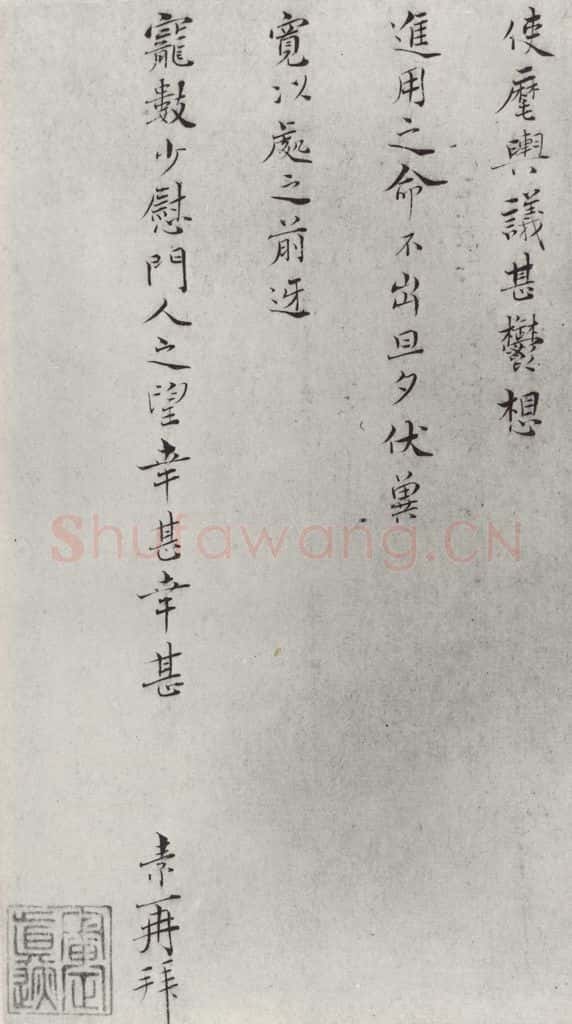 使麾輿議甚鬱想
進用之命不出旦夕伏冀
寬以處之前迓
寵數少慰門人之望幸甚幸甚
素再拜
Shufawang.CN